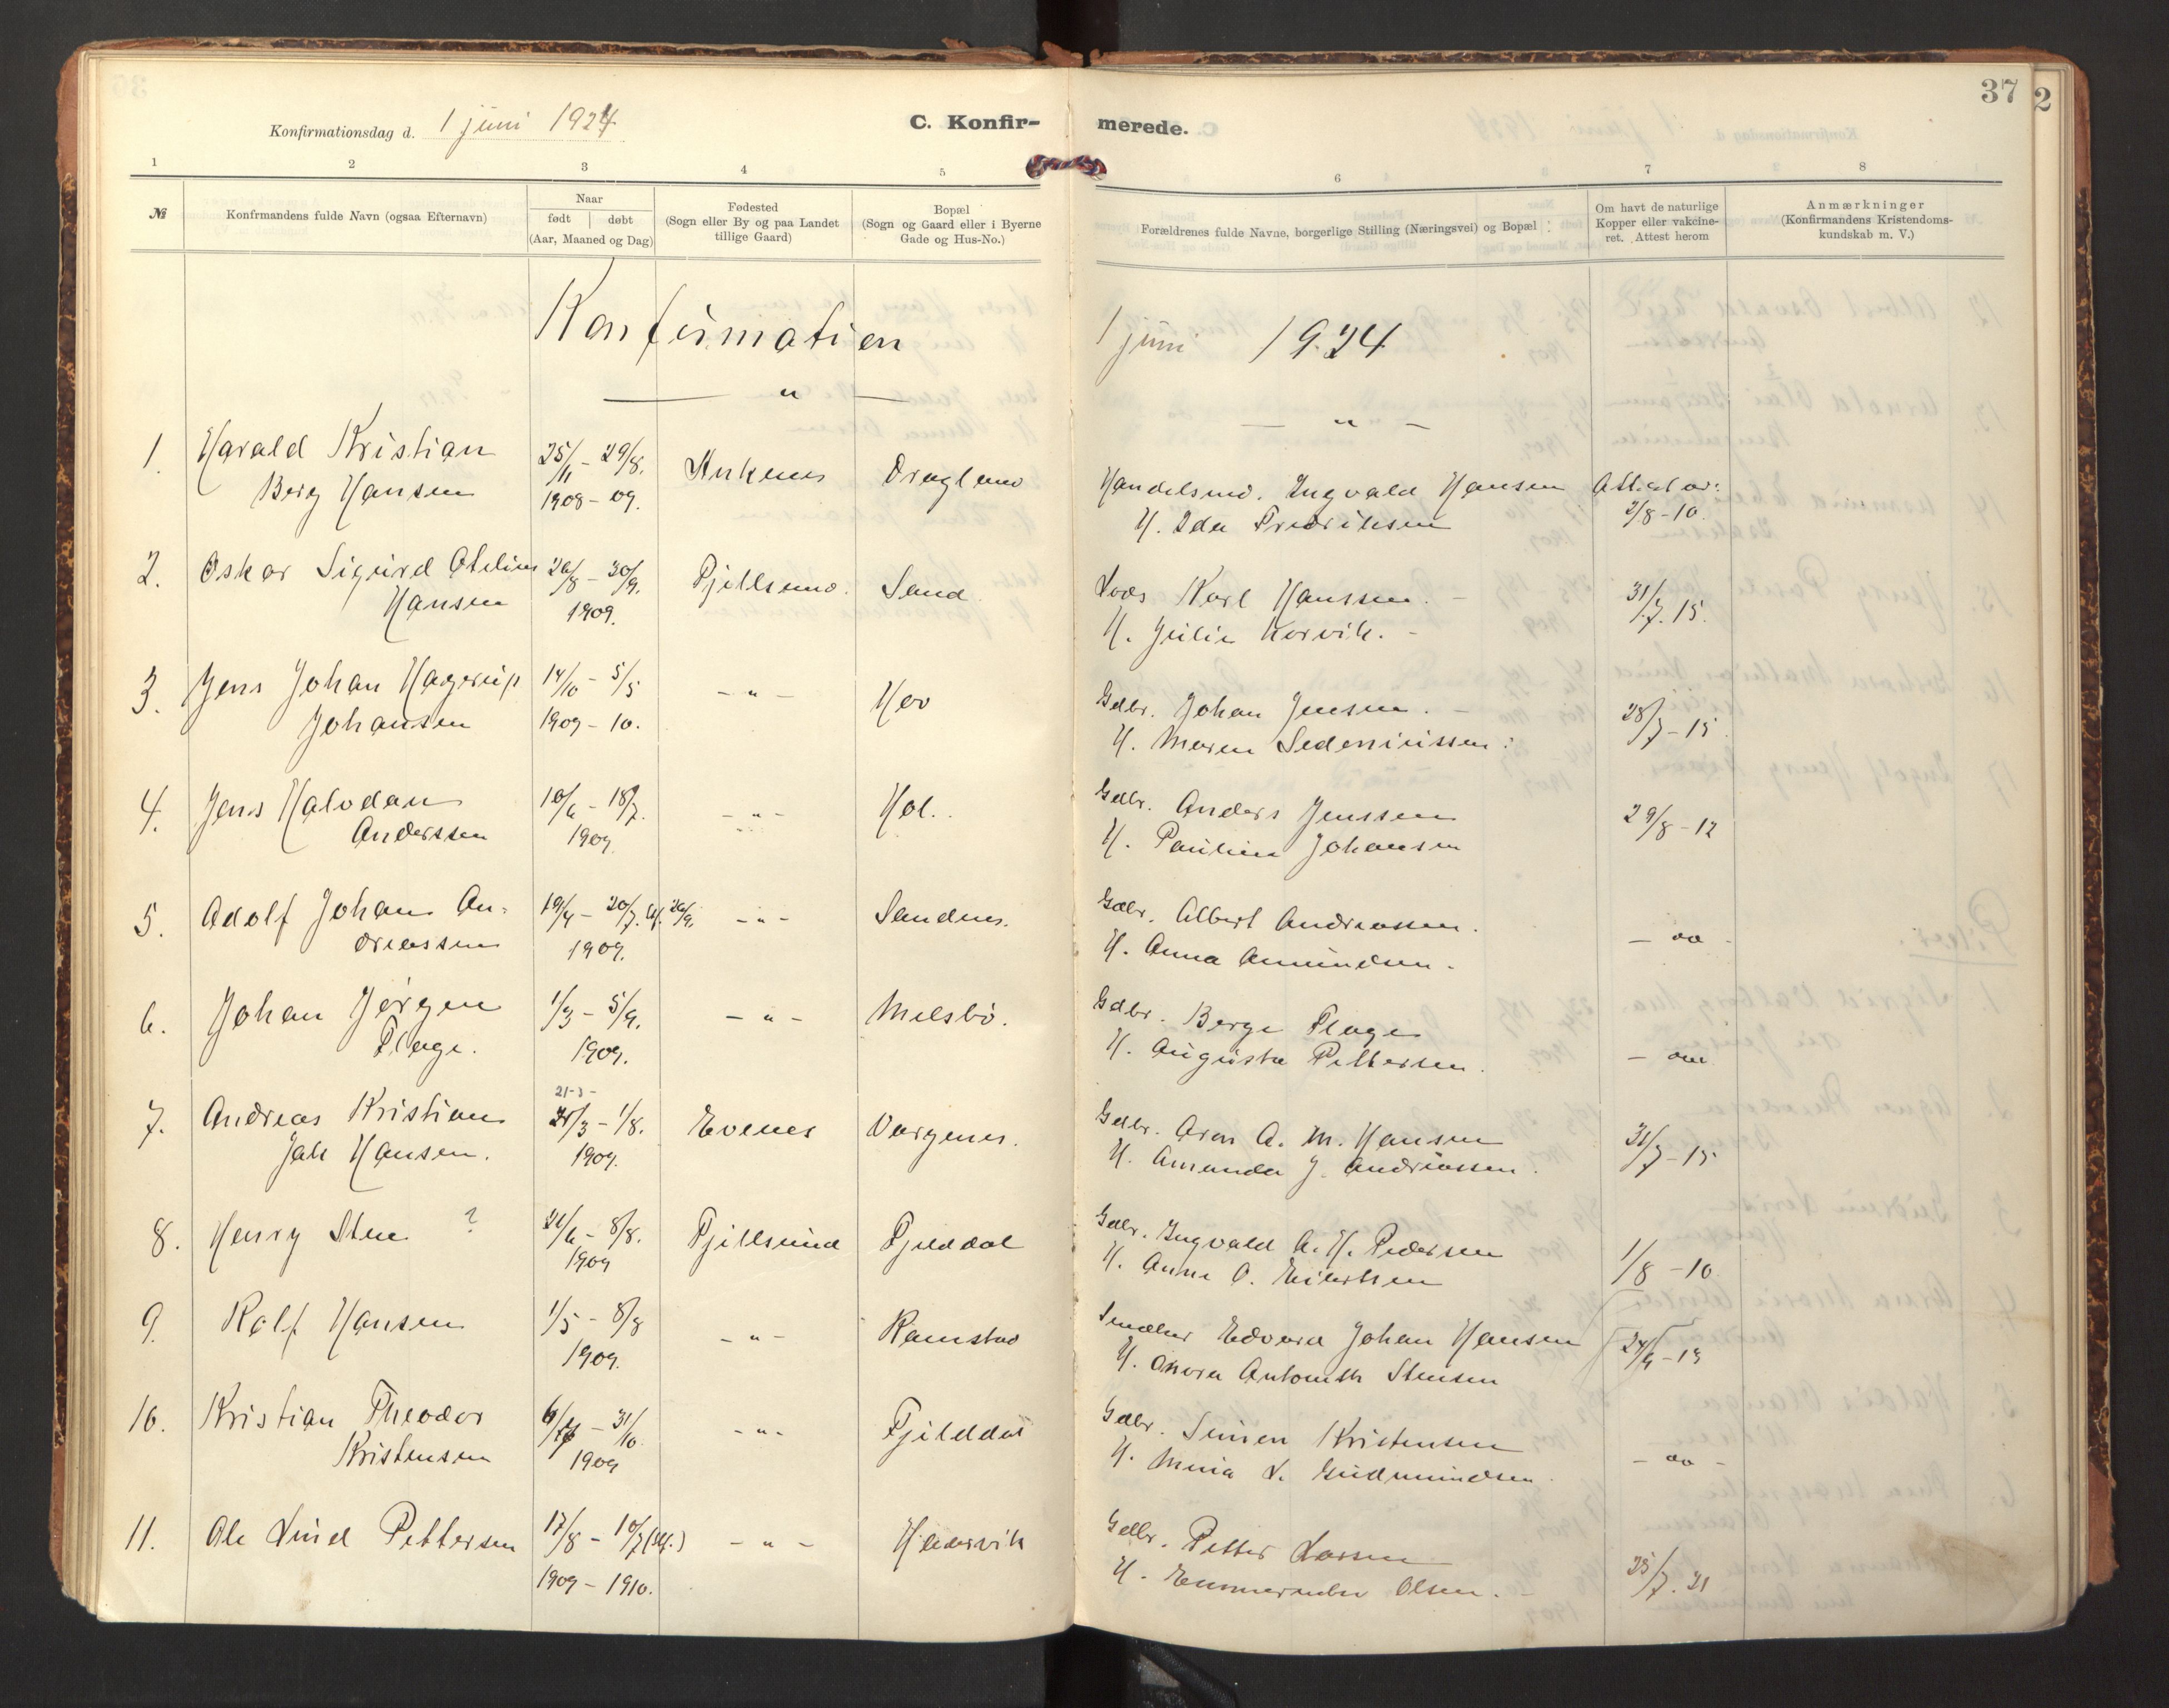 37
2
Konfirmationsdag d. 1 juni 1924
C. Konfir-
merede.
1 2 3 4 5 6 7 8
№
Konfrmandens fulde Navn (ogsaa Efternavn)
Naar
født døbt
(Aar, Maaned og Dag)
Fødested
(Sogn eller By og paa Landet
tillige Gaard)
Bopæl
(Sogn og Gaard eller i Byerne
Gade og Hus-No.)
Forældrenes fulde Navne, borgerlige Stilling (Næringsvei) og Bopæl
Om havt de naturlige
Kopper eller vakcine-
ret. Attest herom
Anmærkninger
(Konfirmandens Kristendoms-
kundskab m. V.)
Konfirmation 1 juni 1924
— " — — " —
1. Harald Kristian 25/11 - 29/8. Ankenes Dragland Handelsmd. Ingvald Hansen Attest av:
Berg Hansen 1908 - 09. H. Ida Fredriksen 2/8 - 10.
2. Oskar Sigurd Otelius 26/8 - 30/9. Fjellsund. Sand. Lods Karl Hanssen. - 31/7. 15.
Hansen 1909. H. Julie Korvik. -
3. Jens Johan Hagerup 14/10 - 5/5 - " - Hov Gdbr. Johan Jensen. - 28/7 - 15
Johansen 1909 - 10. H. Maren
4. Jens Halvdan 10/6 - 18/7. - " - Hol. Gdbr. Anders Jenssen 29/8 - 12
Anderssen 1909. H. Pauline Johansen
5. Adolf Johan An- 19/4 - 20/7. 26/9. - " - Sandnes. Gdbr. Albert Andreassen. - do -
dreassen 1909. H. Anna Amundsen.
6. Johan Jørgen 1/3 - 5/9. - " - Melsbö. Gdbr. Berge Flage
Flage. 1909. H. Augusta Pettersen.
21-3-
7. Andreas Kristian /3 - 1/8. Evenes Vargenes. Gdbr. Aron A. M. Hansen 31/7 - 15
Jak Hansen. 1909. H. Amanda J. Andreassen.
8. Henry Sten ? 21/6 - 8/8. Fjellsund Fjelddal Gdbr. Ingvald A. H. Pedersen 1/8 - 10
1909 H. Anna O. Eilertsen
9. Rolf Hansen 1/5 - 8/8 - " - Ramstad Edvard Johan Hansen 24/9 - 13
1909. H. Antonette Stensen
10. Kristian Theodor - 31/10. - " - Fjelddal Gdbr. Simen Kristensen - do -
Kristensen 1909 H. L. Gudmundsen.
11. Ole Lund Pettersen 17/8 - 10/7 - " - Gdbr. Petter Larsen 25/7. 21
1909 - 1910. H. Olsen.